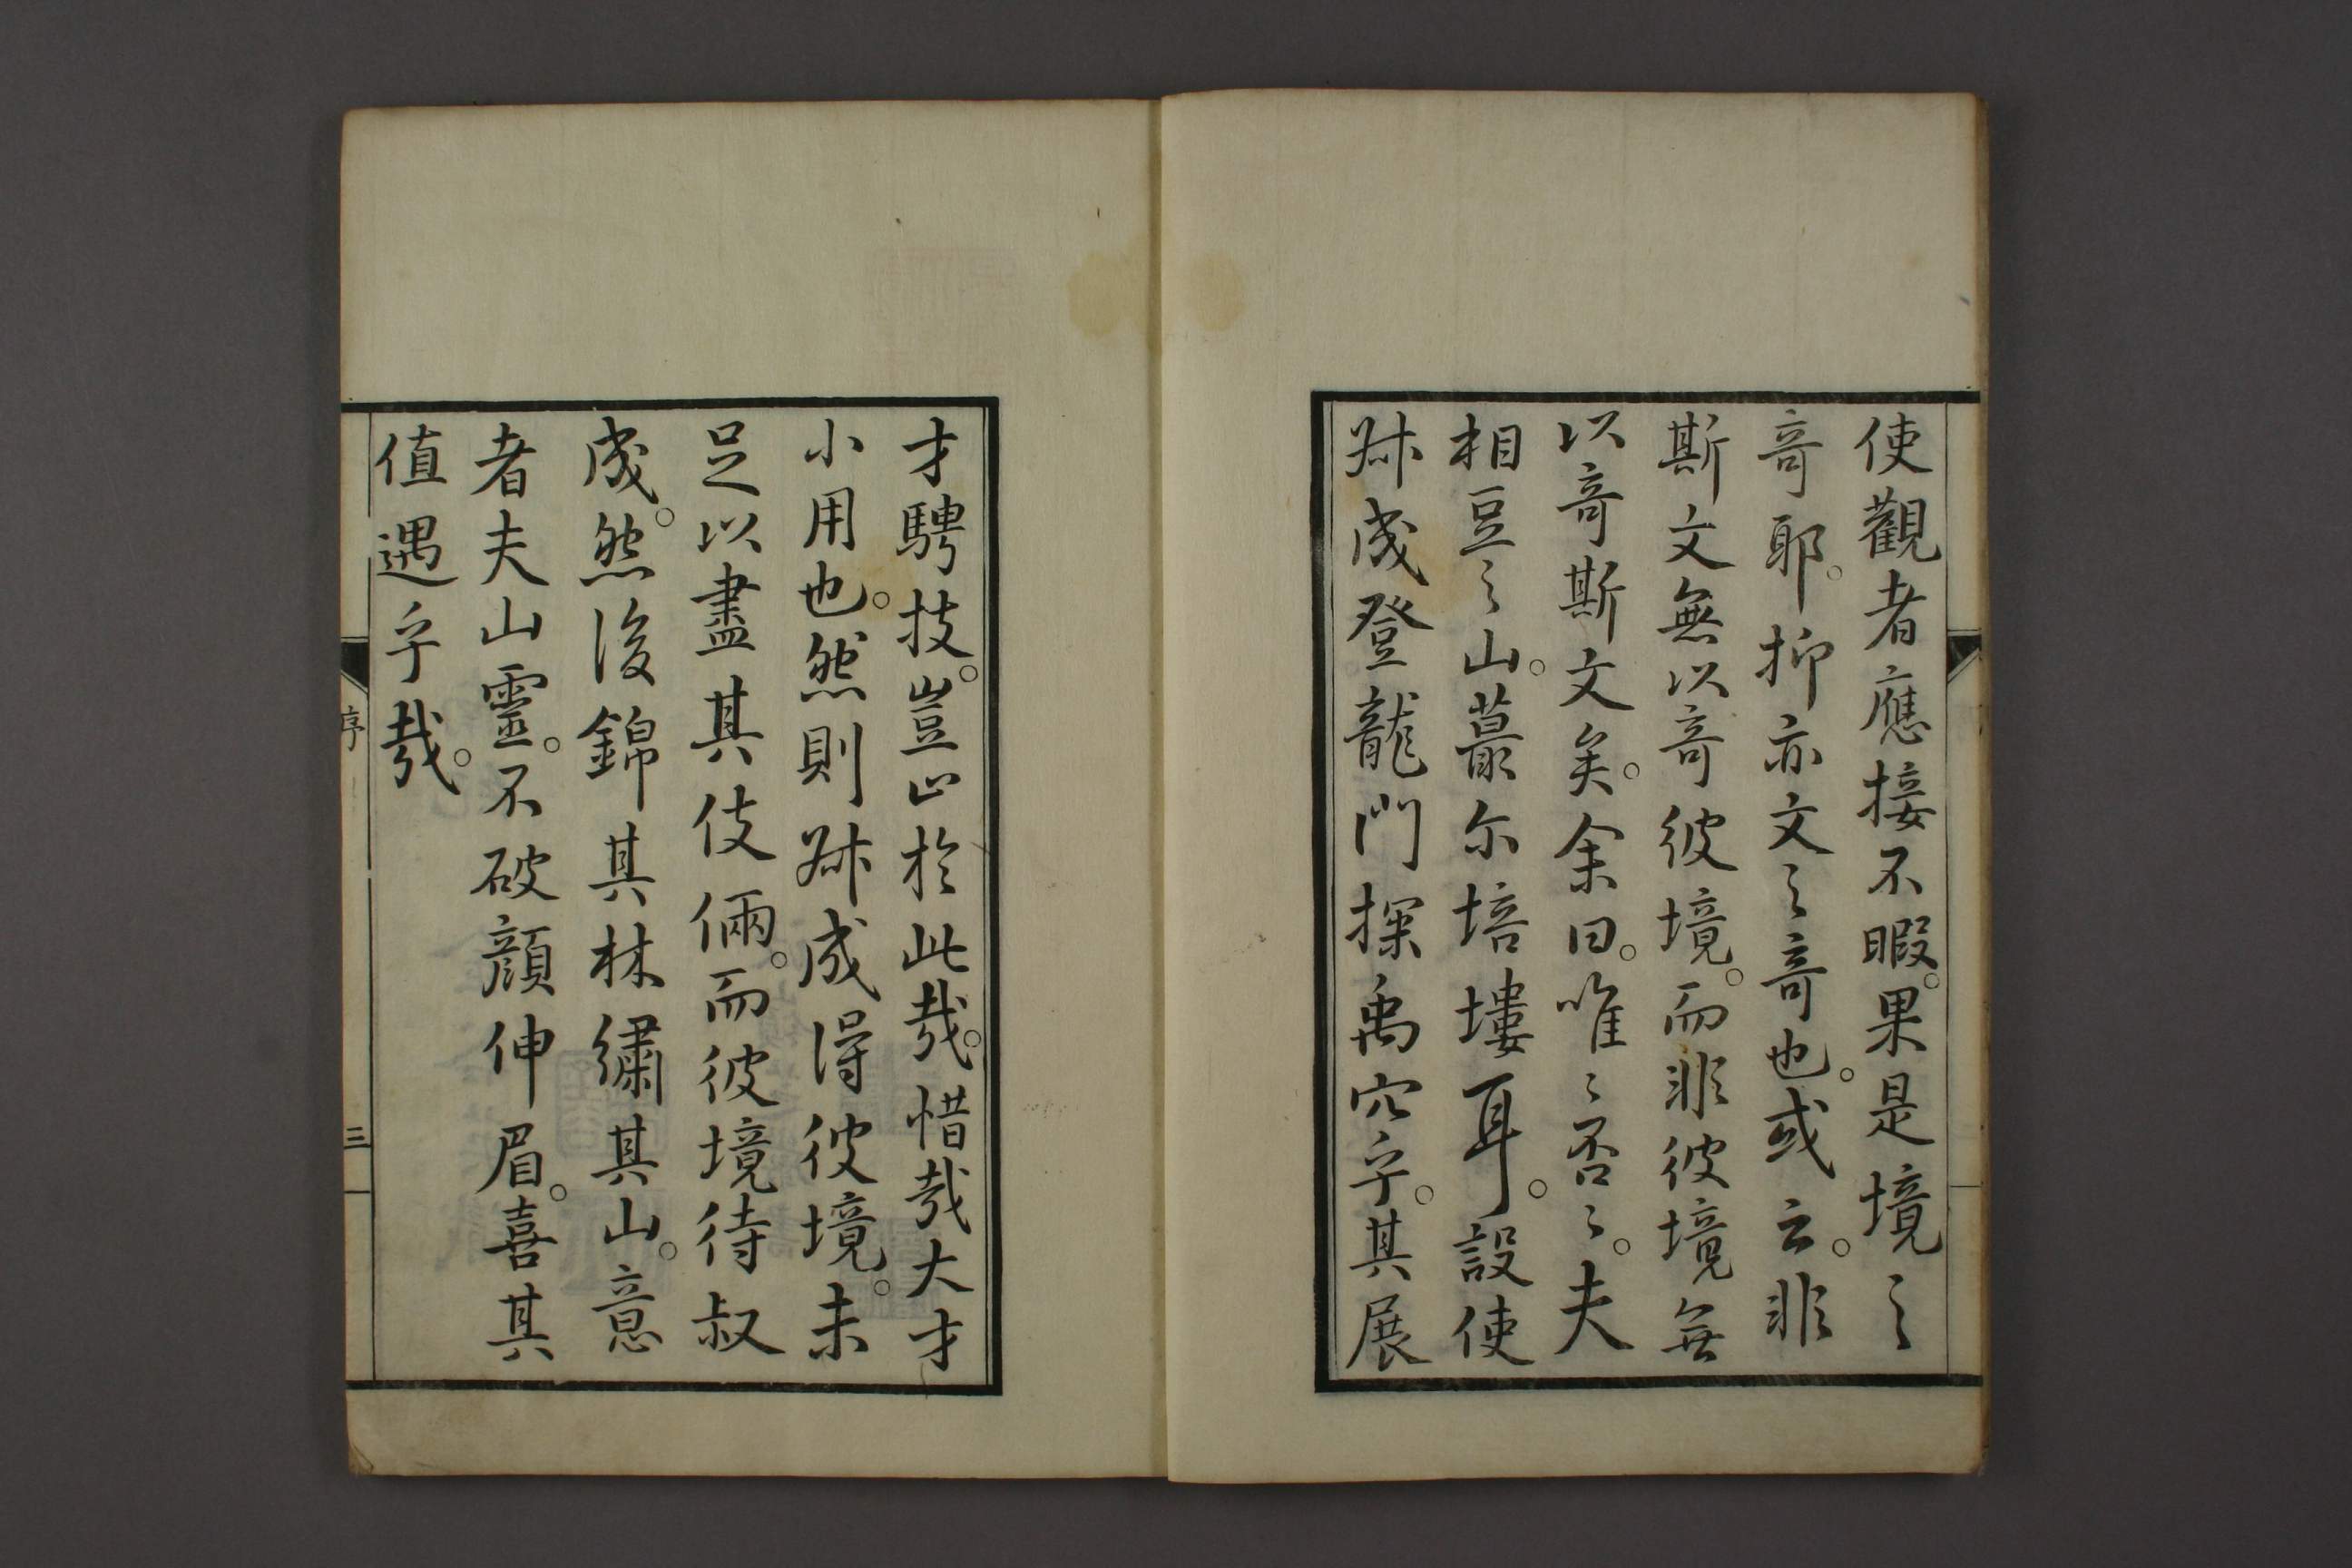 使觀者應接不暇。果是境之
奇耶。抑亦文之奇也。或云。非
斯文無以奇彼境。而非彼境無
以奇斯文矣。余曰。唯〻否〻。夫
相豆之山。蕞尔培塿耳。設使
叔成登龍門探禹穴乎。其展
才騁技。豈止於此哉。惜哉大才
小用也。然則叔成得彼境。未
足以盡其伎倆。而彼境待叔
成。然後錦其林繡其山。意
者夫山靈。不破顏伸眉。喜其
值遇乎哉。
序
三